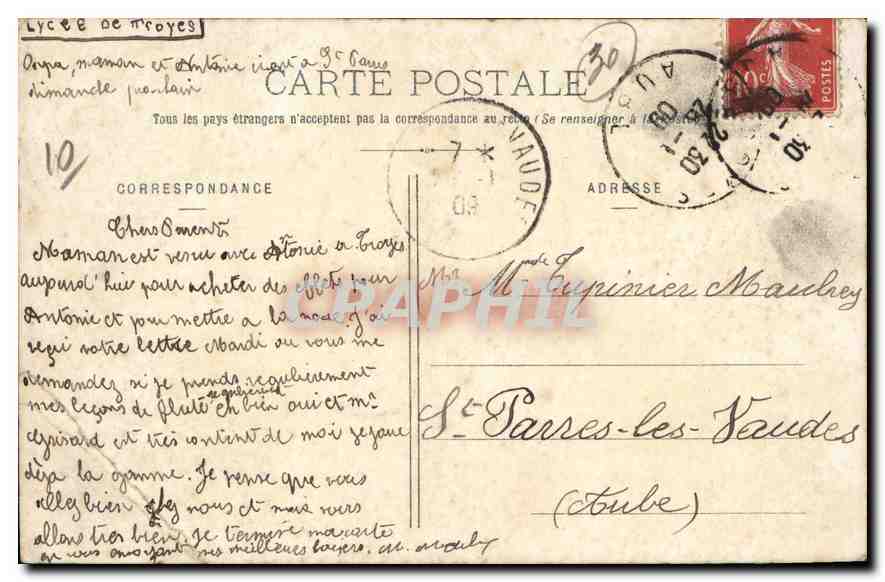 LYCEE DE TROYES
maman et Antonie à St Parres
dimanche prochain
30
CARTE POSTALE
Tous les pays étrangers n'acceptent pas la correspondance au recto (Se renseigner à la Poste)
10
AUBE
VAUDES
7 *
09
POSTES
CORRESPONDANCE
ADRESSE
Chers Parents
Maman est venu avec Antonie a Troyes
aujourd'hui pour acheter des effets pour
Antonie et pour mettre a la mode. J'ai
reçu votre lettre Mardi ou vous me
demandez si je prends regulierement
mes leçons de flute eh bien oui et Mr
Grisard est très content de moi je joue
deja la gamme. Je pense que vous
allez bien chez nous et nous
allons tres bien. Je termine ma carte
en vous envoyant mes meilleurs baisers. M.
Mr Mde Tupinier Maubrey
St Parres-les-Vaudes
(Aube)
CRAPHIL